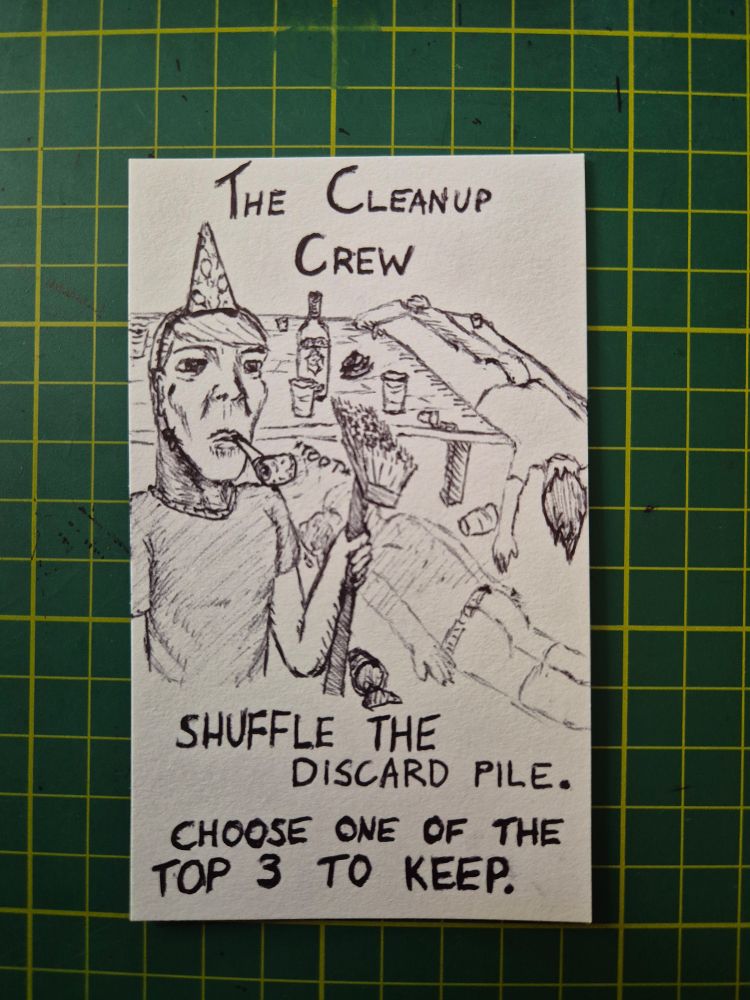 THE CLEANUP
CREW
*TOOT*
SHUFFLE THE
DISCARD PILE.
CHOOSE ONE OF THE
TOP 3 TO KEEP.